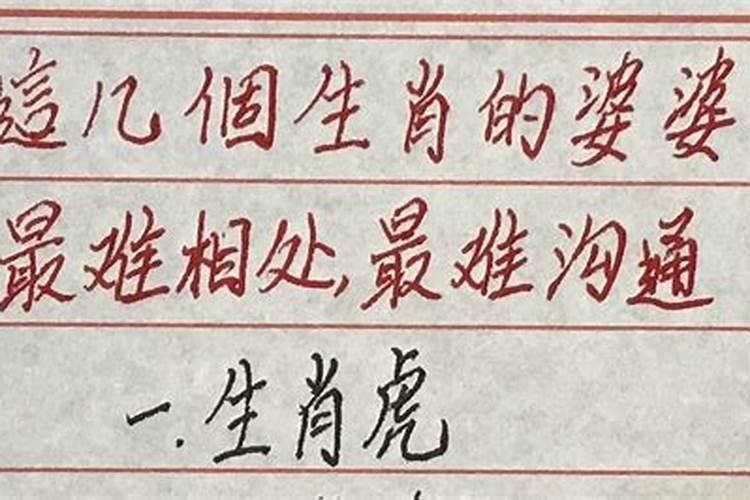 這几個生肖的婆婆
最难相处,最难沟通
一.生肖虎